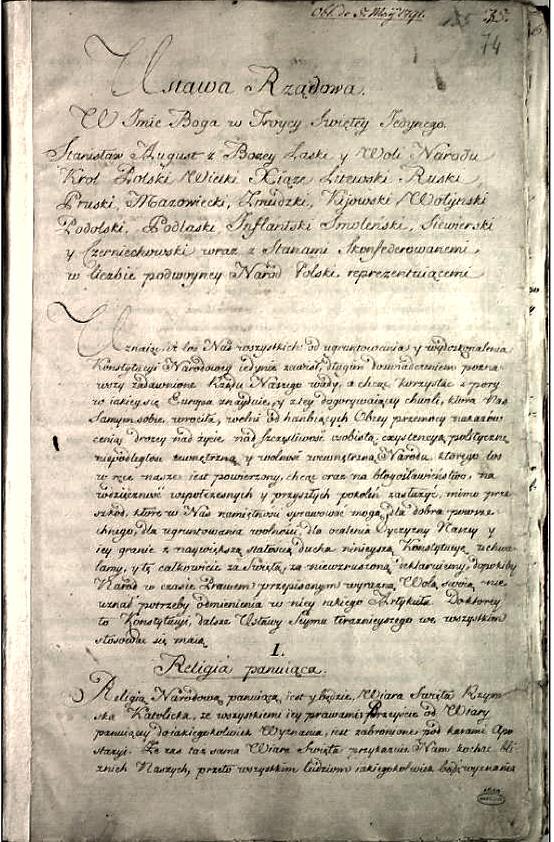 Obl. de 5. Maij 1791.
135 35.
74
Ustawa Rządowa.
W Imie Boga w Troycy Swiętey Jedynego.
Stanisław August z Bozey Łaski y Woli Narodu
Krol Polski Wielki Xiąze Litewski Ruski
Pruski, Mazowiecki, Zmudzki, Kijowski Wołynski
Podolski, Podlaski Inflantski Smolenski, Siewierski
y Czerniechowski wraz z Stanami Skonfederowanemi,
w liczbie podwoyney Narod Polski reprezentuiącemi
Uznaiąc, iż los Nas wszystkich od ugruntowania y wydoskonalenia
Konstytucyi Narodowey iedynie zawisł, długim doswiadczeniem pozna-
wszy zadawnione Rządu Naszego wady, a chcąc korzystac z pory
w iakiey się Europa znayduie, y z tey dogorywaiącey chwili, ktora Nas
samym sobie wrociła, wolni od hanbiących Obcey przemocy nakazow
ceniąc drozey nad zycie, nad szczęsliwosc osobistą exystencyą polityczną
niepodległosc zewnętrzną y wolnosc wewnętrzną Narodu, ktorego los
w ręce nasze iest powierzony, chcąc oraz na błogosławienstwo, na
wdzięcznosc wspołczesnych y przyszłych pokolen zasłuzyc, mimo prze-
szkod, ktore w Nas namiętnosci sprawowac mogą, dla dobra powsze-
chnego, dla ugruntowania wolnosci, dla ocalenia Oyczyzny Naszey y
iey granic z naywiększą stałoscią ducha ninieyszą Konstytucyę uchwa-
lamy, y tę całkowicie za Swiętą, za niewzruszoną deklaruiemy, dopokiby
Narod w czasie Prawem przepisanym wyrazną Wolą swoią nie
uznał potrzeby odmienienia w niey iakiego Artykułu Do ktorey
to Konstytucyi, dalsze Ustawy Seymu teraznieyszego we wszystkim
stosowac się maią
I.
Religia panuiąca.
Religią Narodową panuiącą iest y będzie Wiara Swięta Rzym-
ska Katolicka, ze wszystkiemi iey prawami, Przeyscie od Wiary
panuiącey do iakiegokolwiek Wyznania, iest zabronione pod karami Apo
stazyi. Ze zas taz sama Wiara Swięta przykazuie Nam kochac bli-
znich Naszych, przeto wszystkim ludziom iakiegokolwiek bądz wyznania